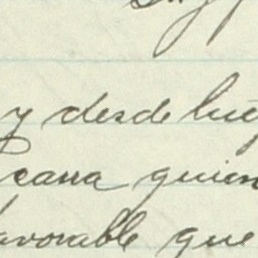 y desde lueg
carra quien
avorable que